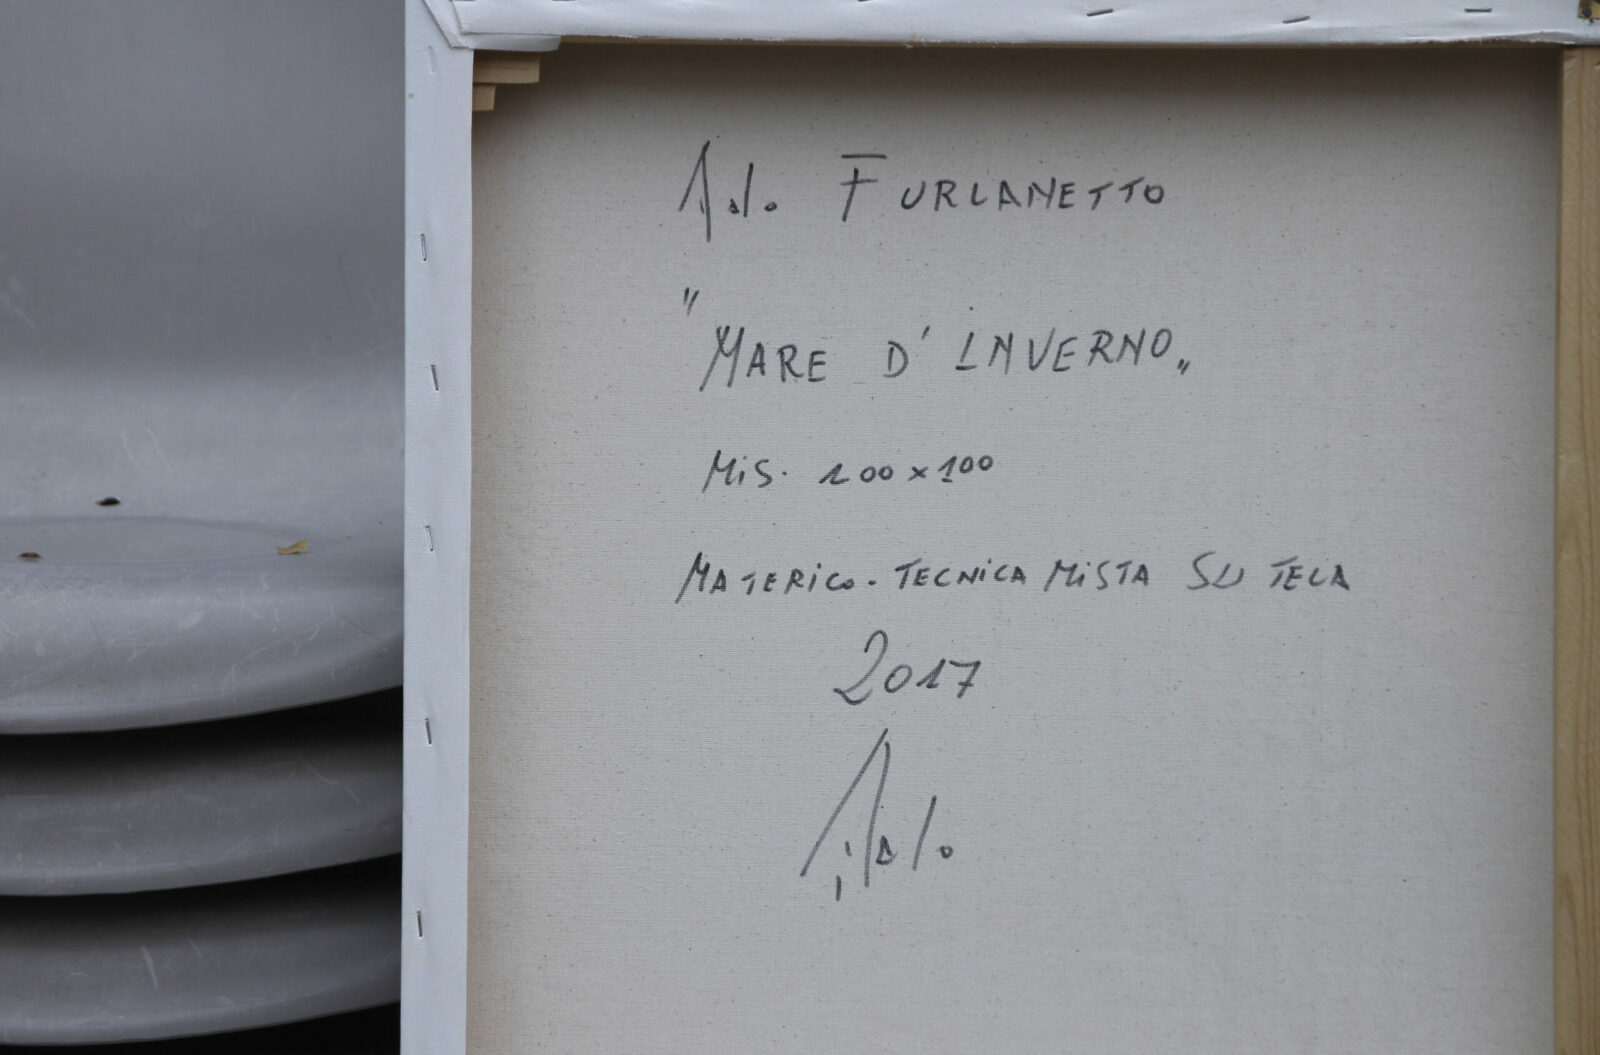 Ado FURLANETTO
"MARE D'INVERNO"
MIS. 100x100
MATERICO - TECNICA MISTA SU TELA
2017